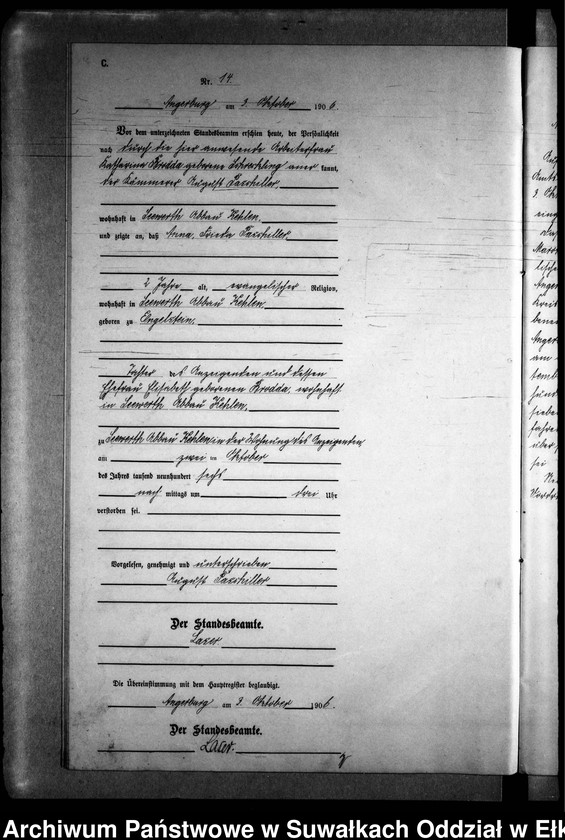 C.
Nr. 14.
Angerburg am 3. Oktober 1906.
Vor dem unterzeichneten Standesbeamten erschien heute, der Persönlichkeit
nach durch die hier anwesende Arbeiterfrau
Katharina Brodda geborene kannt,
der Kämmerer August
wohnhaft in Seewerth Abbau Kehlen,
und zeigte an, daß Anna, Frieda
2 Jahre alt, evangelischer Religion,
wohnhaft in Seewerth Abbau Kehlen,
geboren zu Engelstein,
Tochter des Anzeigenden und dessen
Ehefrau Elisabeth geborenen Brodda, wohnhaft
in Seewerth Abbau Kehlen,
zu Seewerth Abbau Kehlen, in der Wohnung des Anzeigenden
am zwei ten Oktober
des Jahres tausend neunhundert sechs
nach mittags um drei Uhr
verstorben sei.
Vorgelesen, genehmigt und unterschrieben
August
Der Standesbeamte.
Laser
Die Übereinstimmung mit dem Hauptregister beglaubigt.
Angerburg am 3. Oktober 1906.
Der Standesbeamte.
Laser.
Archiwum Państwowe w Suwałkach Oddział w Ełk